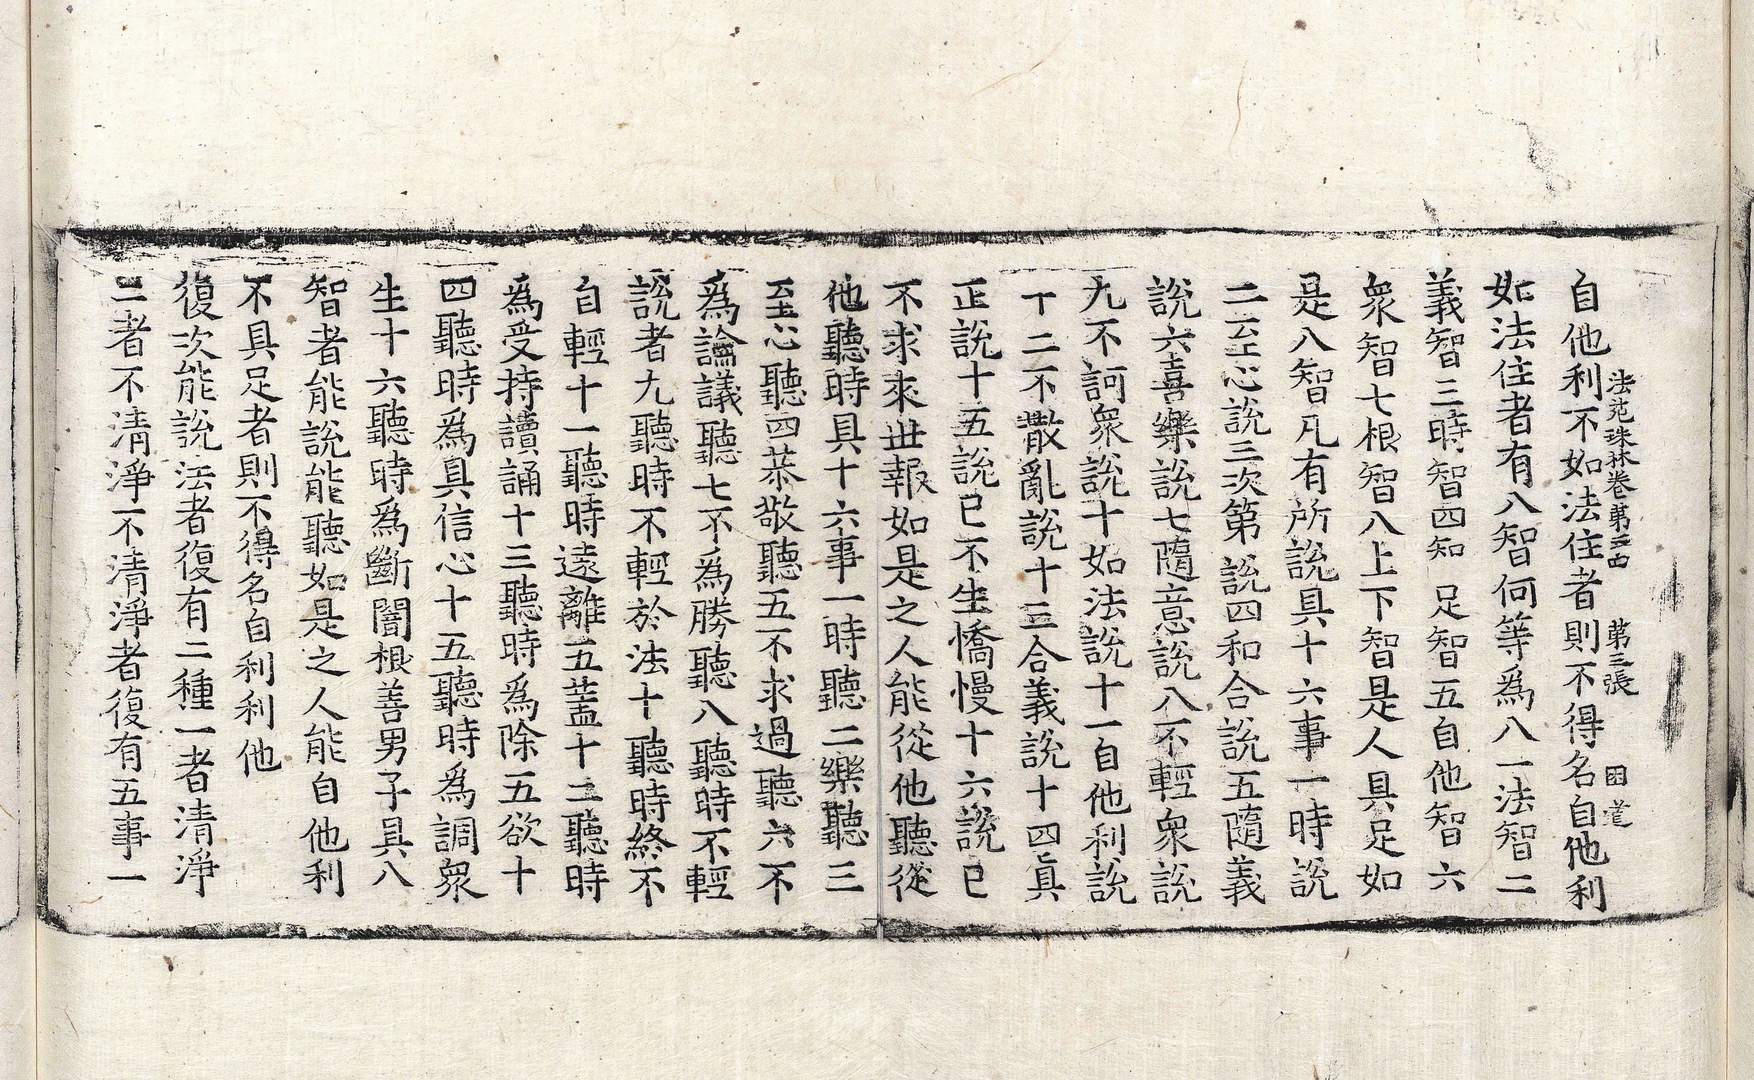 法苑珠林卷第二四　第三張
自他利不如法住者則不得名自他利
如法住者有八智何等爲八一法智二
義智三時智四知足智五自他智六
衆智七根智八上下智是人具足如
是八智凡有所說具十六事一時說
二至心說三次第說四和合說五隨義
說六喜樂說七隨意說八不輕衆說
九不訶衆說十如法說十一自他利說
十二不散亂說十三合義說十四眞
正說十五說已不生憍慢十六說已
不求來世報如是之人能從他聽從
他聽時具十六事一時聽二樂聽三
至心聽四恭敬聽五不求過聽六不
爲論議聽七不爲勝聽八聽時不輕
說者九聽時不輕於法十聽時終不
自輕十一聽時遠離五蓋十二聽時
爲受持讀誦十三聽時爲除五欲十
四聽時爲具信心十五聽時爲調衆
生十六聽時爲斷闇根善男子具八
智者能說能聽如是之人能自他利
不具足者則不得名自利利他
復次能說法者復有二種一者清淨
二者不清淨不清淨者復有五事一